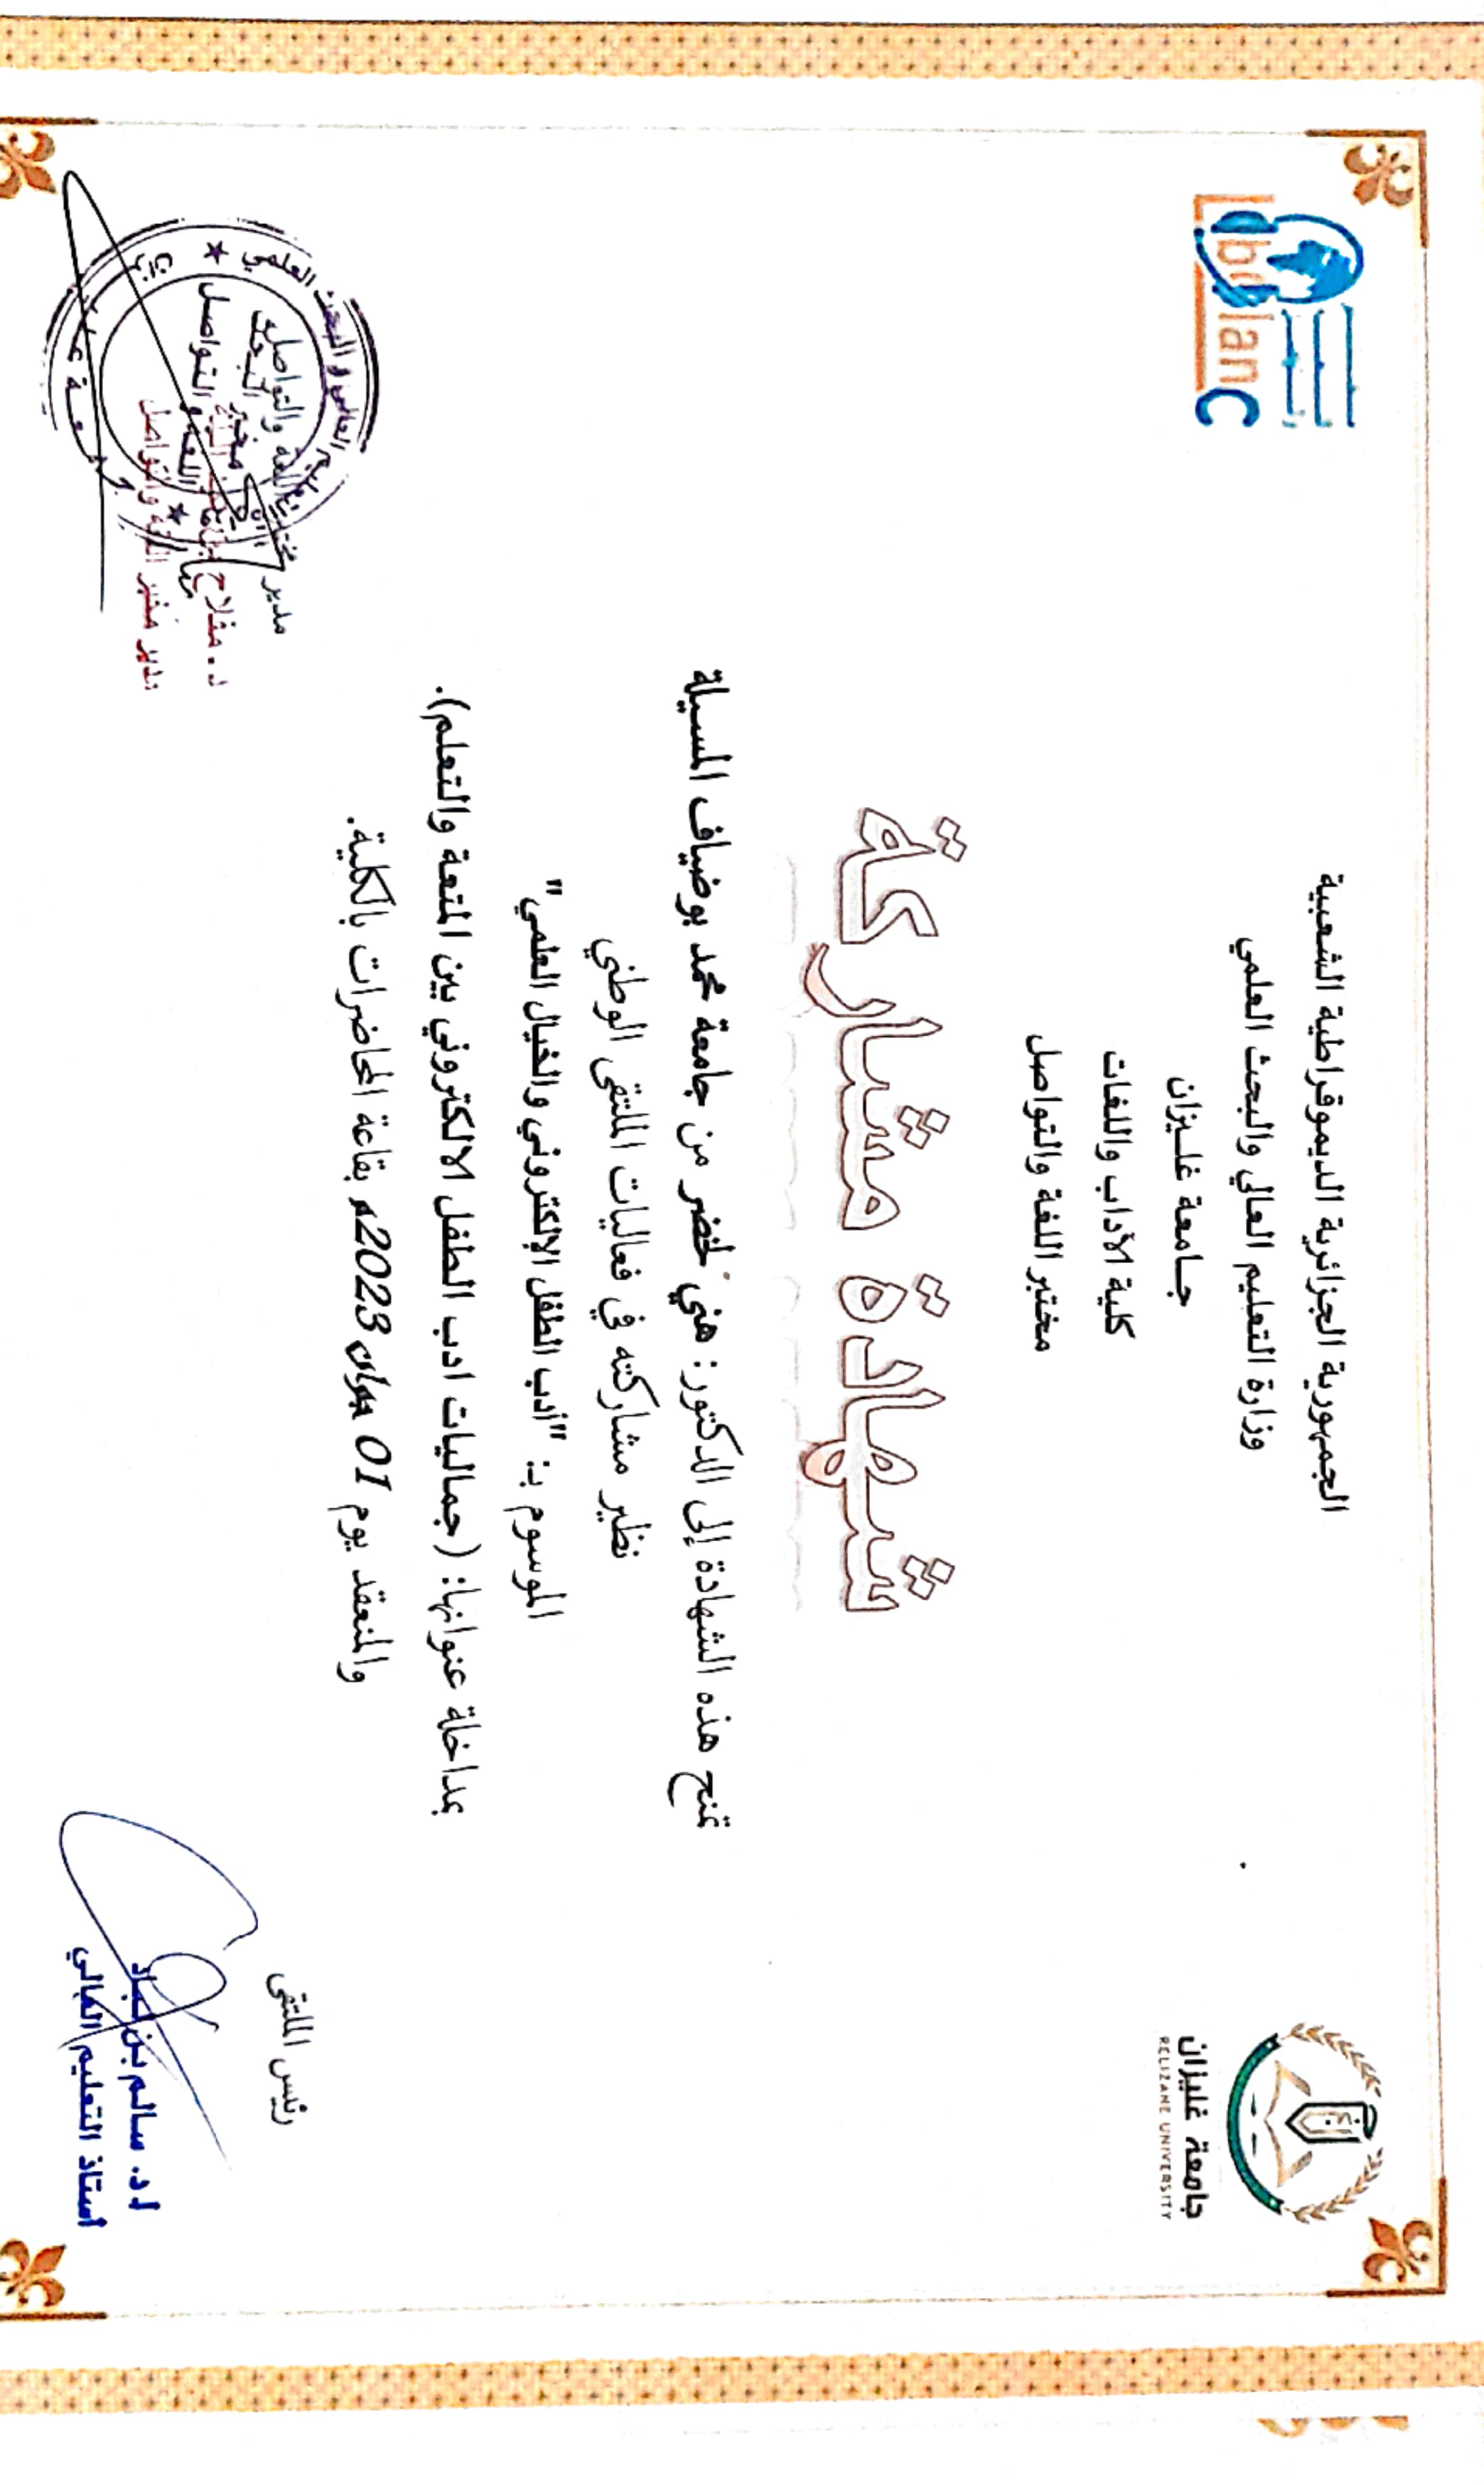 الجمهورية الجزائرية الديموقراطية الشعبية
وزارة التعليم العالي والبحث العلمي
جامعة غليزان
كلية الآداب واللغات
مختبر اللغة والتواصل
جامعة غليزان
RELIZANE UNIVERSITY
LabilanC
شهادة مشاركة
تمنح هذه الشهادة إلى الدكتور: هني لخضر من جامعة محمد بوضياف المسيلة
نظير مشاركته في فعاليات الملتقى الوطني
الموسوم بـ: "أدب الطفل الإلكتروني والخيال العلمي"
بمداخلة عنوانها: (جماليات ادب الطفل الالكتروني بين المتعة والتعلم).
والمنعقد يوم 01 جوان 2023م بقاعة المحاضرات بالكلية.
رئيس الملتقى
أ.د. سالم بن
أستاذ التعليم العالي
مدير مختبر اللغة والتواصل
د. مفلاح بن
مدير مخبر اللغة والتواصل
مخبر
اللغة و التواصل